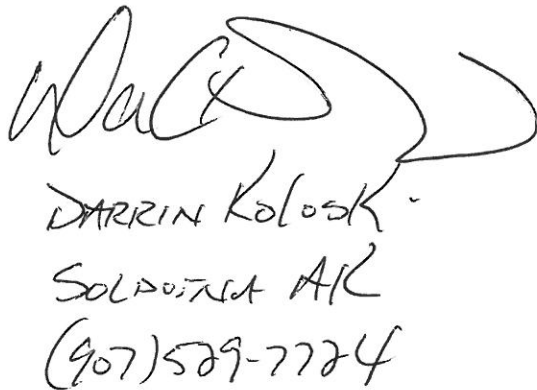 DARRIN Kolosk
SOLDOTNA AK
(907)529-7724